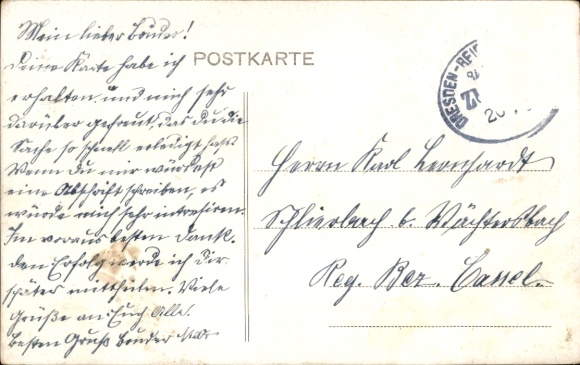 Mein lieber Bruder!
Deine Karte habe ich
erhalten und mich sehr
darüber gefreut, das du die
Sache so schnell erledigt hast
Wenn Du mir würdest
eine Abschrift schreiben, es
würde mich sehr intresiren.
Im voraus besten Dank.
den Erfolg werde ich dir
später mittheilen. Viele
Grüße an Euch Alle.
besten Gruß bruder
POSTKARTE
DRESDEN-REI
Herrn Karl Leonhardt
Schlierbach b. Wächtersbach
Reg. Bez. Cassel.